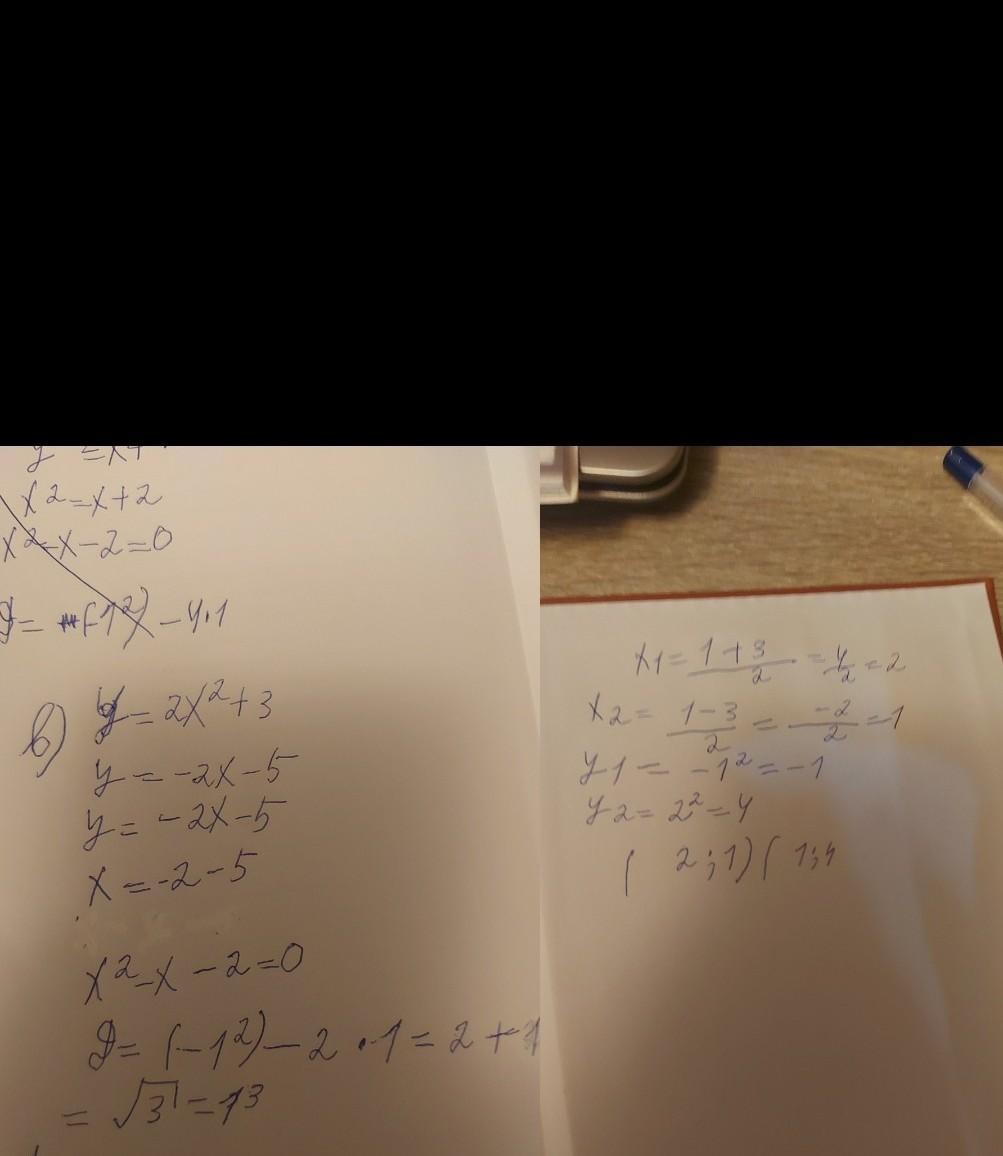 y =x+
x²=x+2
x²-x-2=0
D= (-1²) -4·1
b) y=2x²+3
y=-2x-5
y=-2x-5
x=-2-5
x²-x-2=0
D=(-1²)-2·1=2+
=√3=13
x1=1+3/2=4/2=2
x2=1-3/2=-2/2=-1
y1=-1²=-1
y2=2²=4
( 2;1)( 1;4